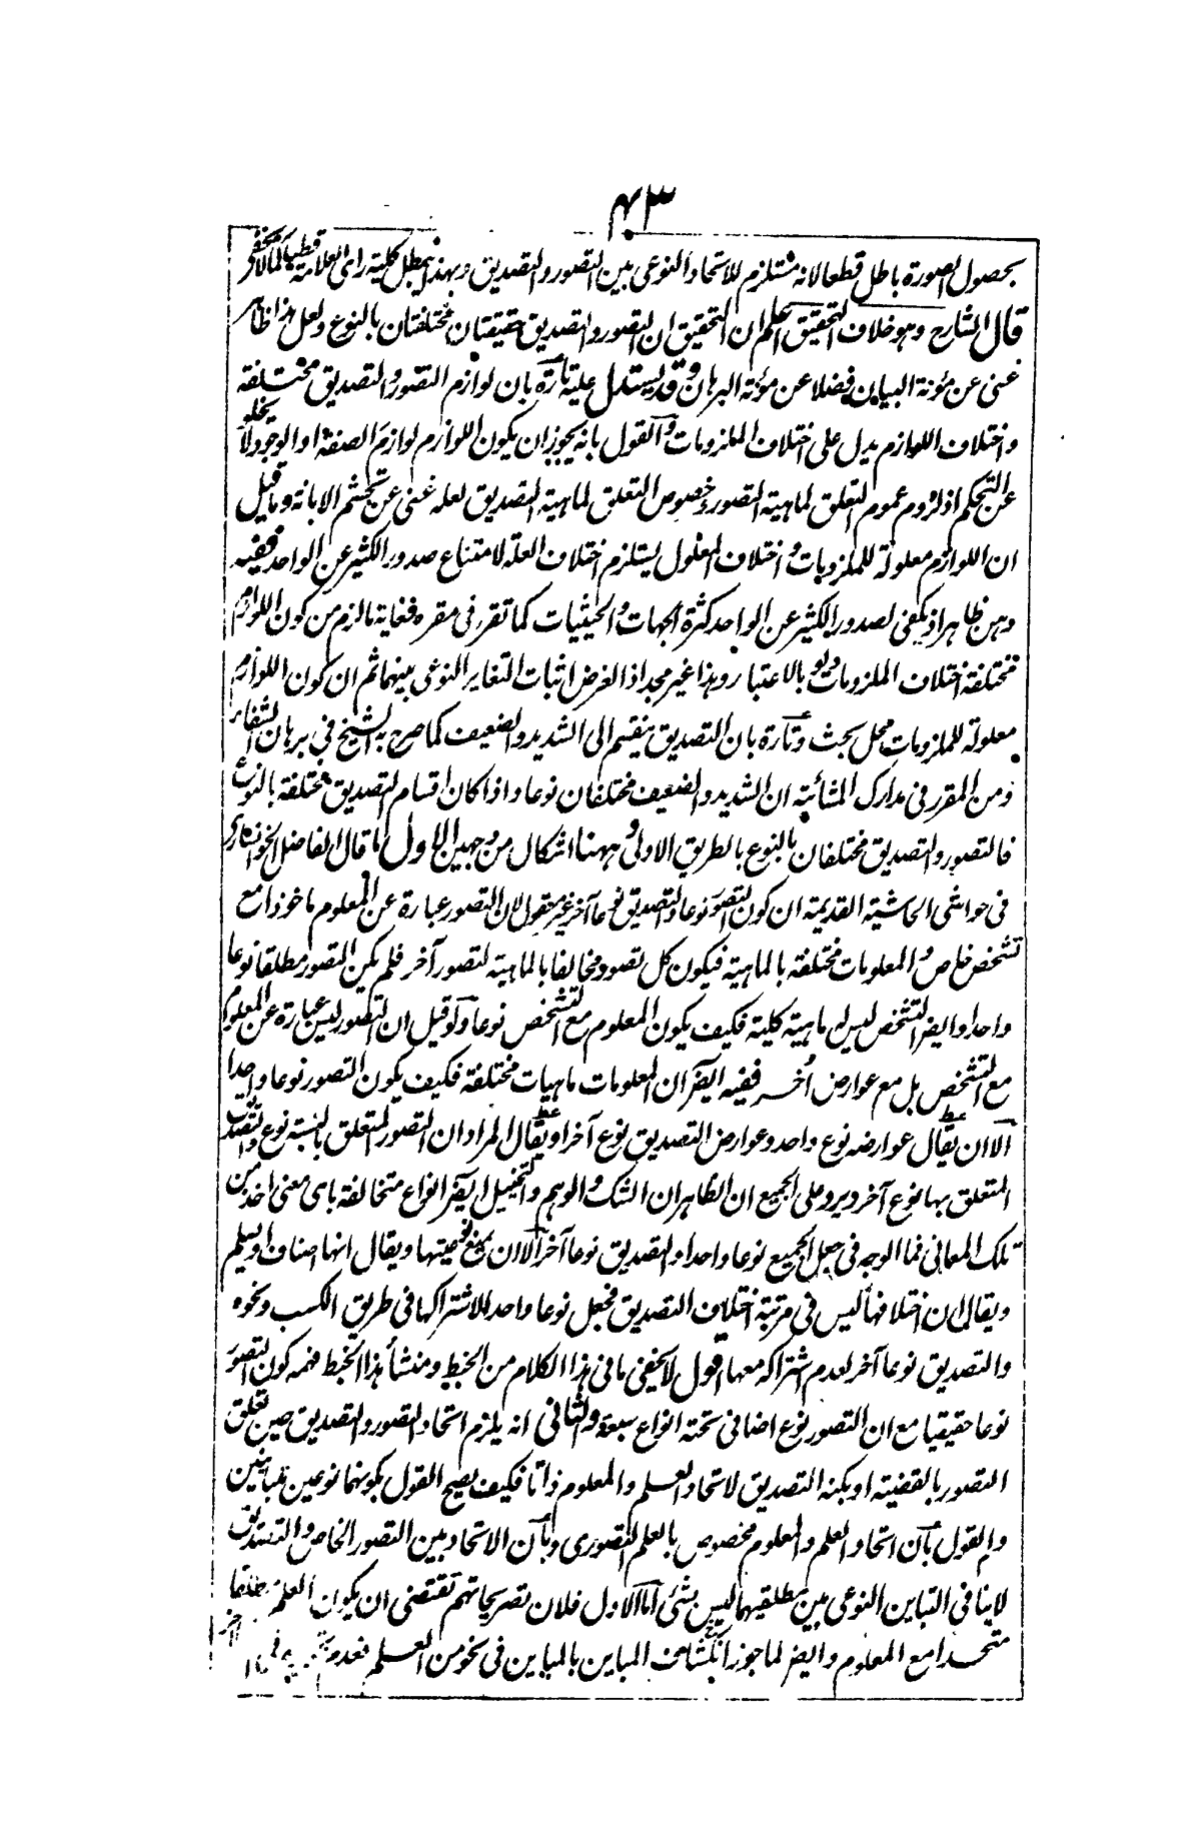 ۴۳
بحصول الصورة باطل قطعا لانه مستلزم للاتحاد النوعى بين التصور والتصديق وبهذا يبطل كلية راى العلامة كما لا يخفى
قال الشارح وهو خلاف التحقيق اعلم ان التحقيق ان التصور والتصديق حقيقتان مختلفتان بالنوع ولعل هذا ظاهر
غنى عن مؤنة البيان فضلا عن مؤنة البرهان وقد يستدل عليه تارة بان لوازم التصور والتصديق مختلفة
واختلاف اللوازم يدل على اختلاف الملزومات والقول بانه يجوز ان يكون اللوازم لوازم الصنف او الوجود لا يخلو
عن التحكم اذ لزوم عموم التعلق لماهية التصور وخصوص التعلق لماهية التصديق لعله غنى عن تجشم الابانة وما قيل
ان اللوازم معلولة للملزومات واختلاف المعلول يستلزم اختلاف العلة لامتناع صدور الكثير عن الواحد ففيه
وهن ظاهر اذ يكفى لصدور الكثير عن الواحد كثرة الجهات والحيثيات كما تقرر فى مقره فغاية ما لزم من كون اللوازم
مختلفة اختلاف الملزومات ولو بالاعتبار وهذا غير مجد اذ الغرض اثبات التغاير النوعى بينهما ثم ان كون اللوازم
معلولة للملزومات محل بحث وتارة بان التصديق ينقسم الى الشديد والضعيف كما صرح به الشيخ فى برهان الشفاء
ومن المقرر فى مدارك المشائية ان الشديد والضعيف مختلفان نوعا واذا كان اقسام التصديق مختلفة بالنوع
فالتصور والتصديق مختلفان بالنوع بالطريق الاولى وههنا اشكال من وجهين الاول ما قال الفاضل الخوانسارى
فى حواشى الحاشية القديمة ان كون التصور نوعا والتصديق نوعا آخر غير معقول لان التصور عبارة عن المعلوم ماخوذا مع
تشخص خاص والمعلومات مختلفة بالماهية فيكون كل تصور مخالفا بالماهية لتصور آخر فلم يكن التصور مطلقا نوعا
واحدا وايضا التشخص ليس له ماهية كلية فكيف يكون المعلوم مع التشخص نوعا ولو قيل ان التصور ليس عبارة عن المعلوم
مع التشخص بل مع عوارض أخر ففيه ايضا ان المعلومات ماهيات مختلفة فكيف يكون التصور نوعا واحدا
الا ان يقال عوارضه نوع واحد وعوارض التصديق نوع آخر او يقال المراد ان التصور المتعلق بالنسبة نوع والتصديق
المتعلق بها نوع آخر ويرد على الجميع ان الظاهر ان الشك والوهم والتخييل ايضا انواع متخالفة باى معنى اخذ من
تلك المعانى فما الوجه فى جعل الجميع نوعا واحدا والتصديق نوعا آخر الا ان يمنع نوعيتها ويقال انها اصناف او يسلم
ويقال ان اختلافها ليس فى مرتبة اختلاف التصديق فجعل نوعا واحدا لاشتراكها فى طريق الكسب ونحوه
والتصديق نوعا آخر لعدم اشتراكه معها اقول لا يخفى ما فى هذا الكلام من الخبط ومنشأ هذا الخبط فهمه كون التصور
نوعا حقيقيا مع ان التصور نوع اضافى تحته انواع سبعة والثانى انه يلزم اتحاد التصور والتصديق حين تعلق
التصور بالقضية او بكنه التصديق لاتحاد العلم والمعلوم ذاتا فكيف يصح القول بكونهما نوعين متباينين
والقول بان اتحاد العلم والمعلوم مخصوص بالعلم التصورى وبان الاتحاد بين التصور الخاص والتصديق
لا ينافى التباين النوعى بين مطلقيهما ليس بشئ اما الاول فلان تصريحاتهم تقتضى ان يكون العلم مطلقا
متحدا مع المعلوم وايضا لما جوز انكشاف المباين بالمباين فى نحو من العلم فعدم